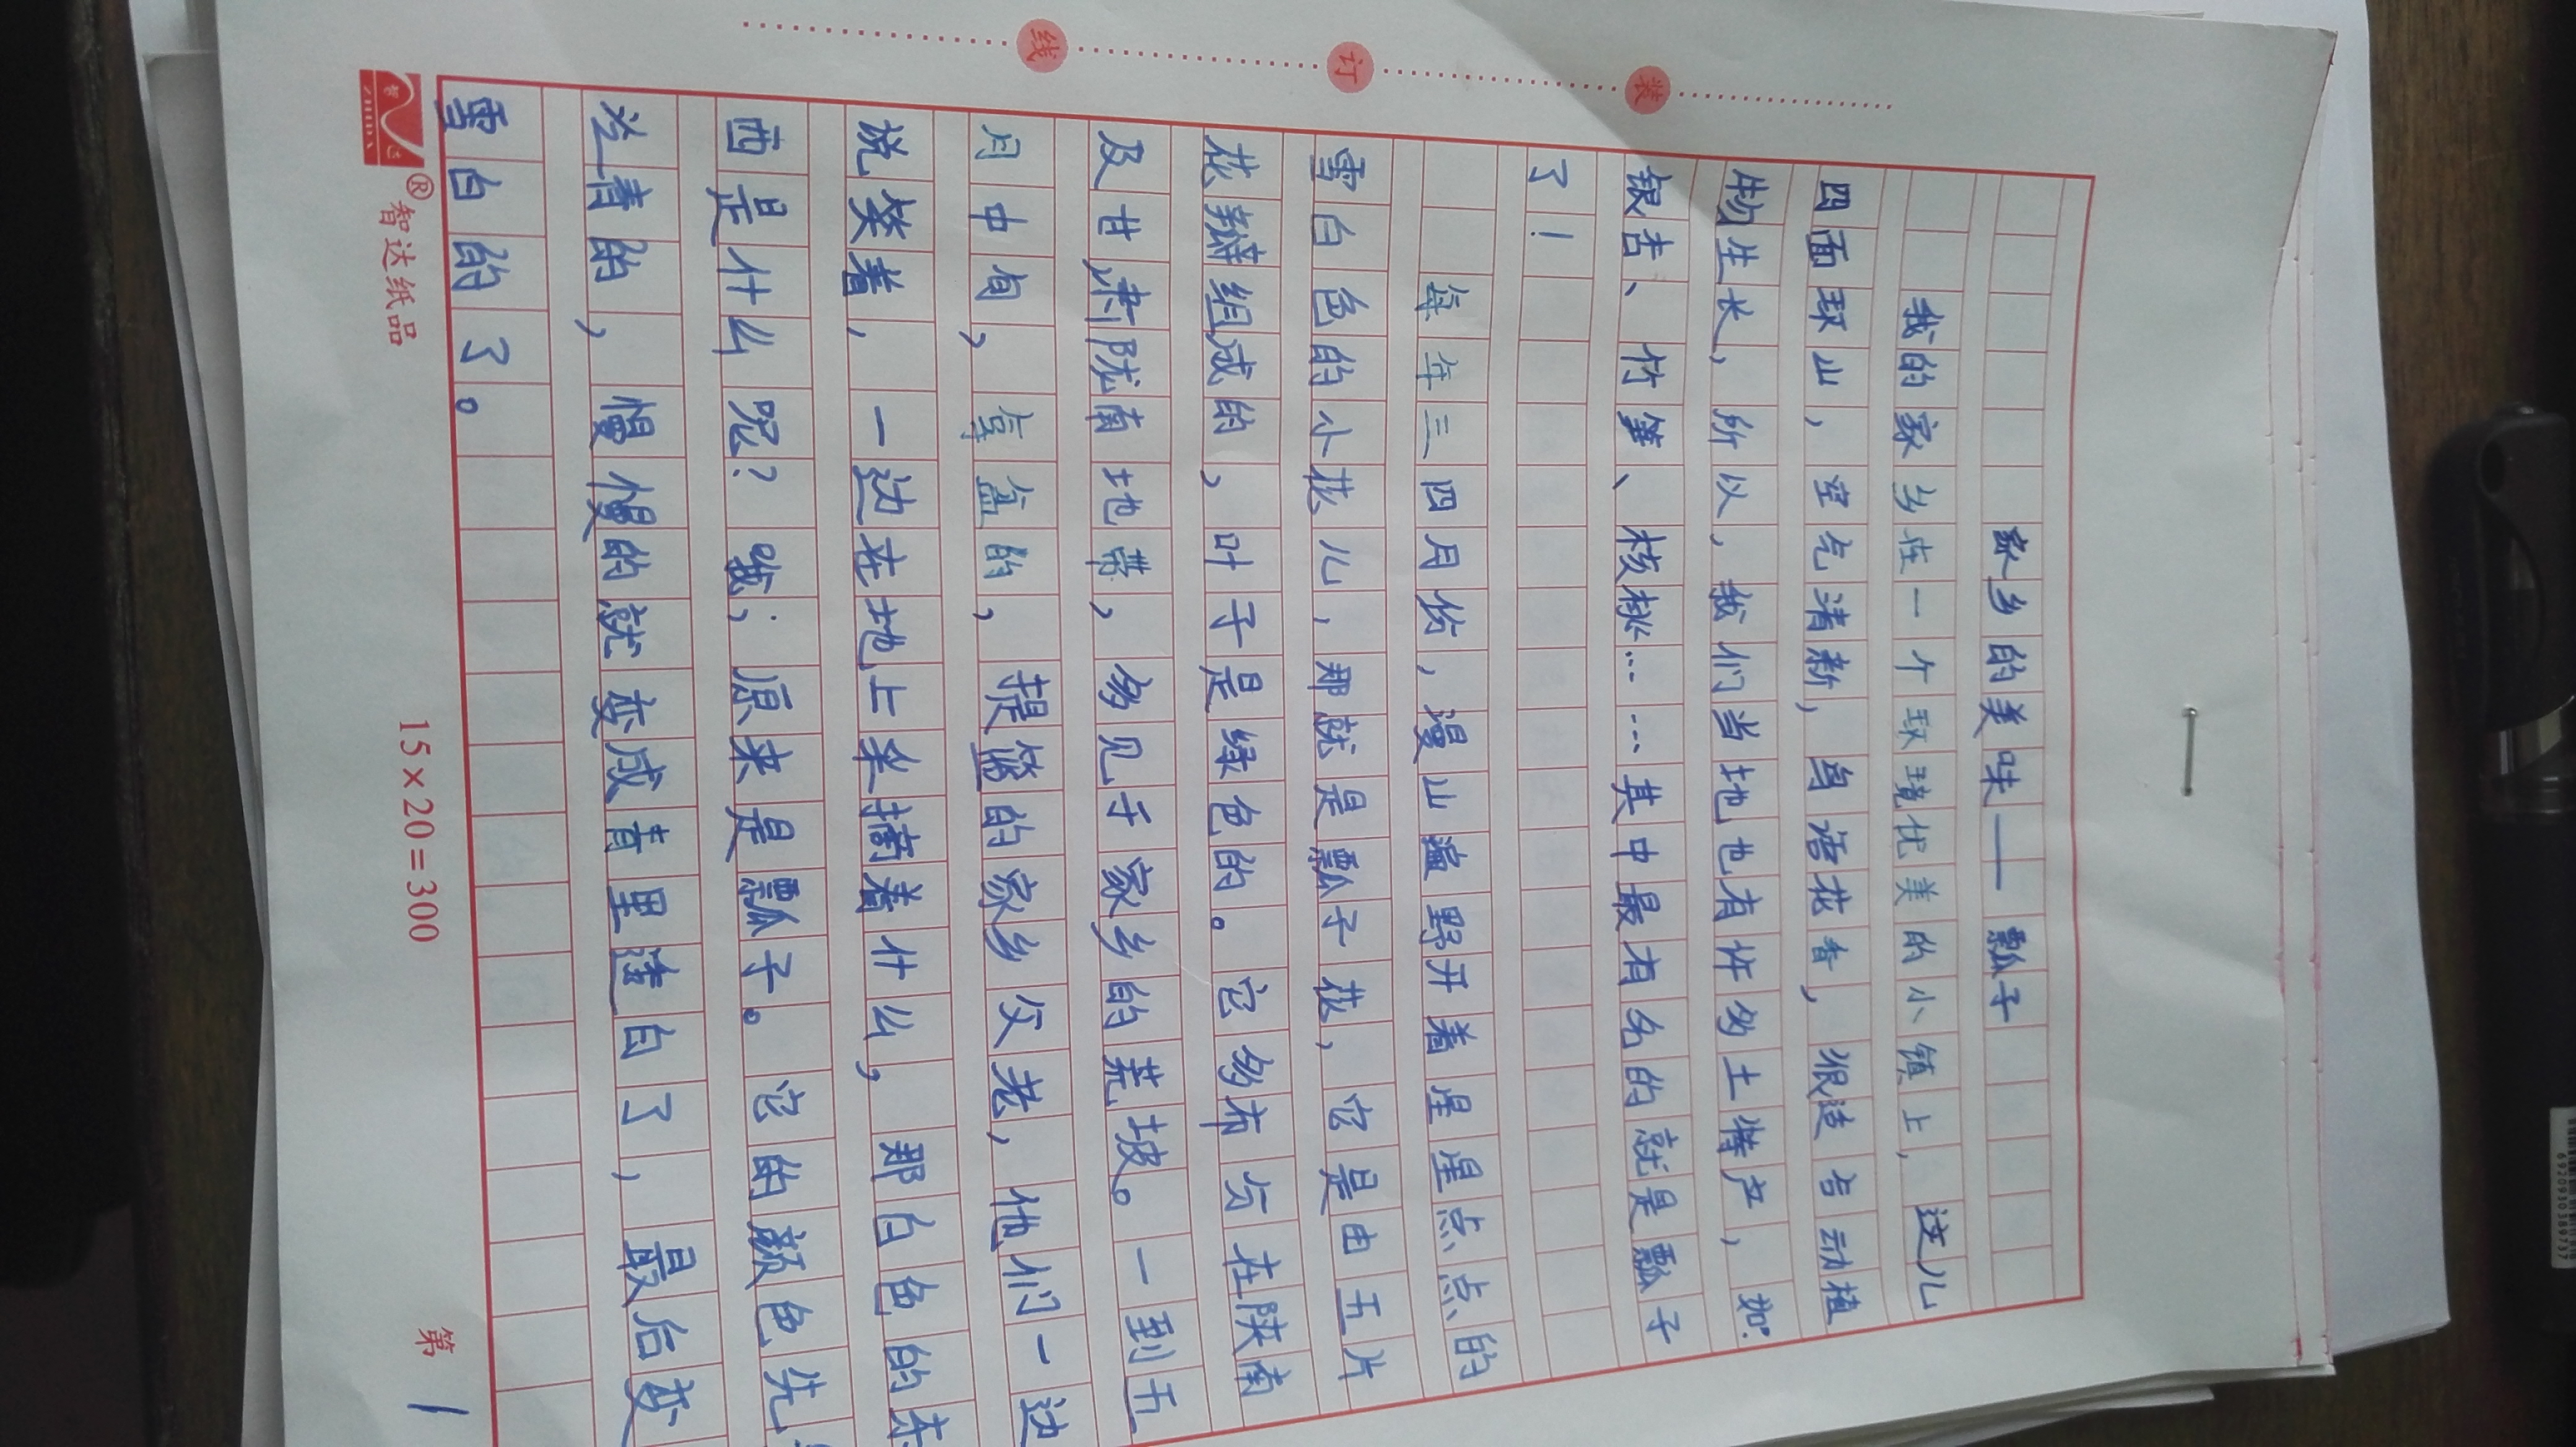 装
订
线
家乡的美味——瓢子
我的家乡在一个环境优美的小镇上,这儿
四面环山,空气清新,鸟语花香,很适合动植
物生长,所以,我们当地也有许多土特产,如:
银杏、竹笋、核桃……其中最有名的就是瓢子
了!
每年三四月份,漫山遍野开着星星点点的
雪白色的小花儿,那就是瓢子花,它是由五片
花瓣组成的,叶子是绿色的。它多布分在陕南
及甘肃陇南地带,多见于家乡的荒坡。一到五
月中旬,拿盆的,提篮的家乡父老,他们一边
说笑着,一边在地上采摘着什么,那白色的东
西是什么呢?哦;原来是瓢子。它的颜色先
是青的,慢慢的就变成青里透白了,最后变
雪白的了。
智达
ZHIDA
®智达纸品
15×20=300
第 1
6920930389737